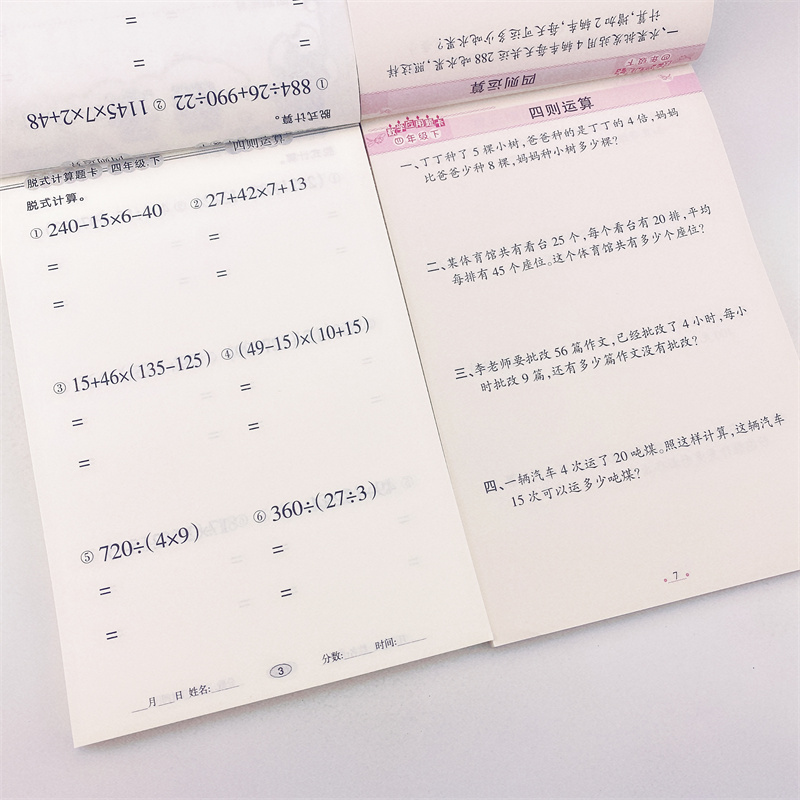 ① 884÷26+990÷22 ② 1145×7×2+48
脱式计算。
一、水果批发站用 4 辆车每天共运 288 吨水果,照这样
计算,增加 2 辆车,每天可运多少吨水果?
四则运算
四年级下
脱式计算题卡－四年级 下
四则运算
脱式计算。
① 240−15×6−40 ② 27+42×7+13
= =
= =
③ 15+46×(135−125) ④ (49−15)×(10+15)
= =
= =
⑤ 720÷(4×9) ⑥ 360÷(27÷3)
= =
= =
月 日 姓名: 3 分数: 时间:
四年级下
四则运算
一、丁丁种了 5 棵小树,爸爸种的是丁丁的 4 倍,妈妈
比爸爸少种 8 棵,妈妈种小树多少棵?
二、某体育馆共有看台 25 个,每个看台有 20 排,平均
每排有 45 个座位。这个体育馆共有多少个座位?
三、李老师要批改 56 篇作文,已经批改了 4 小时,每小
时批改 9 篇,还有多少篇作文没有批改?
四、一辆汽车 4 次运了 20 吨煤。照这样计算,这辆汽车
15 次可以运多少吨煤?
7